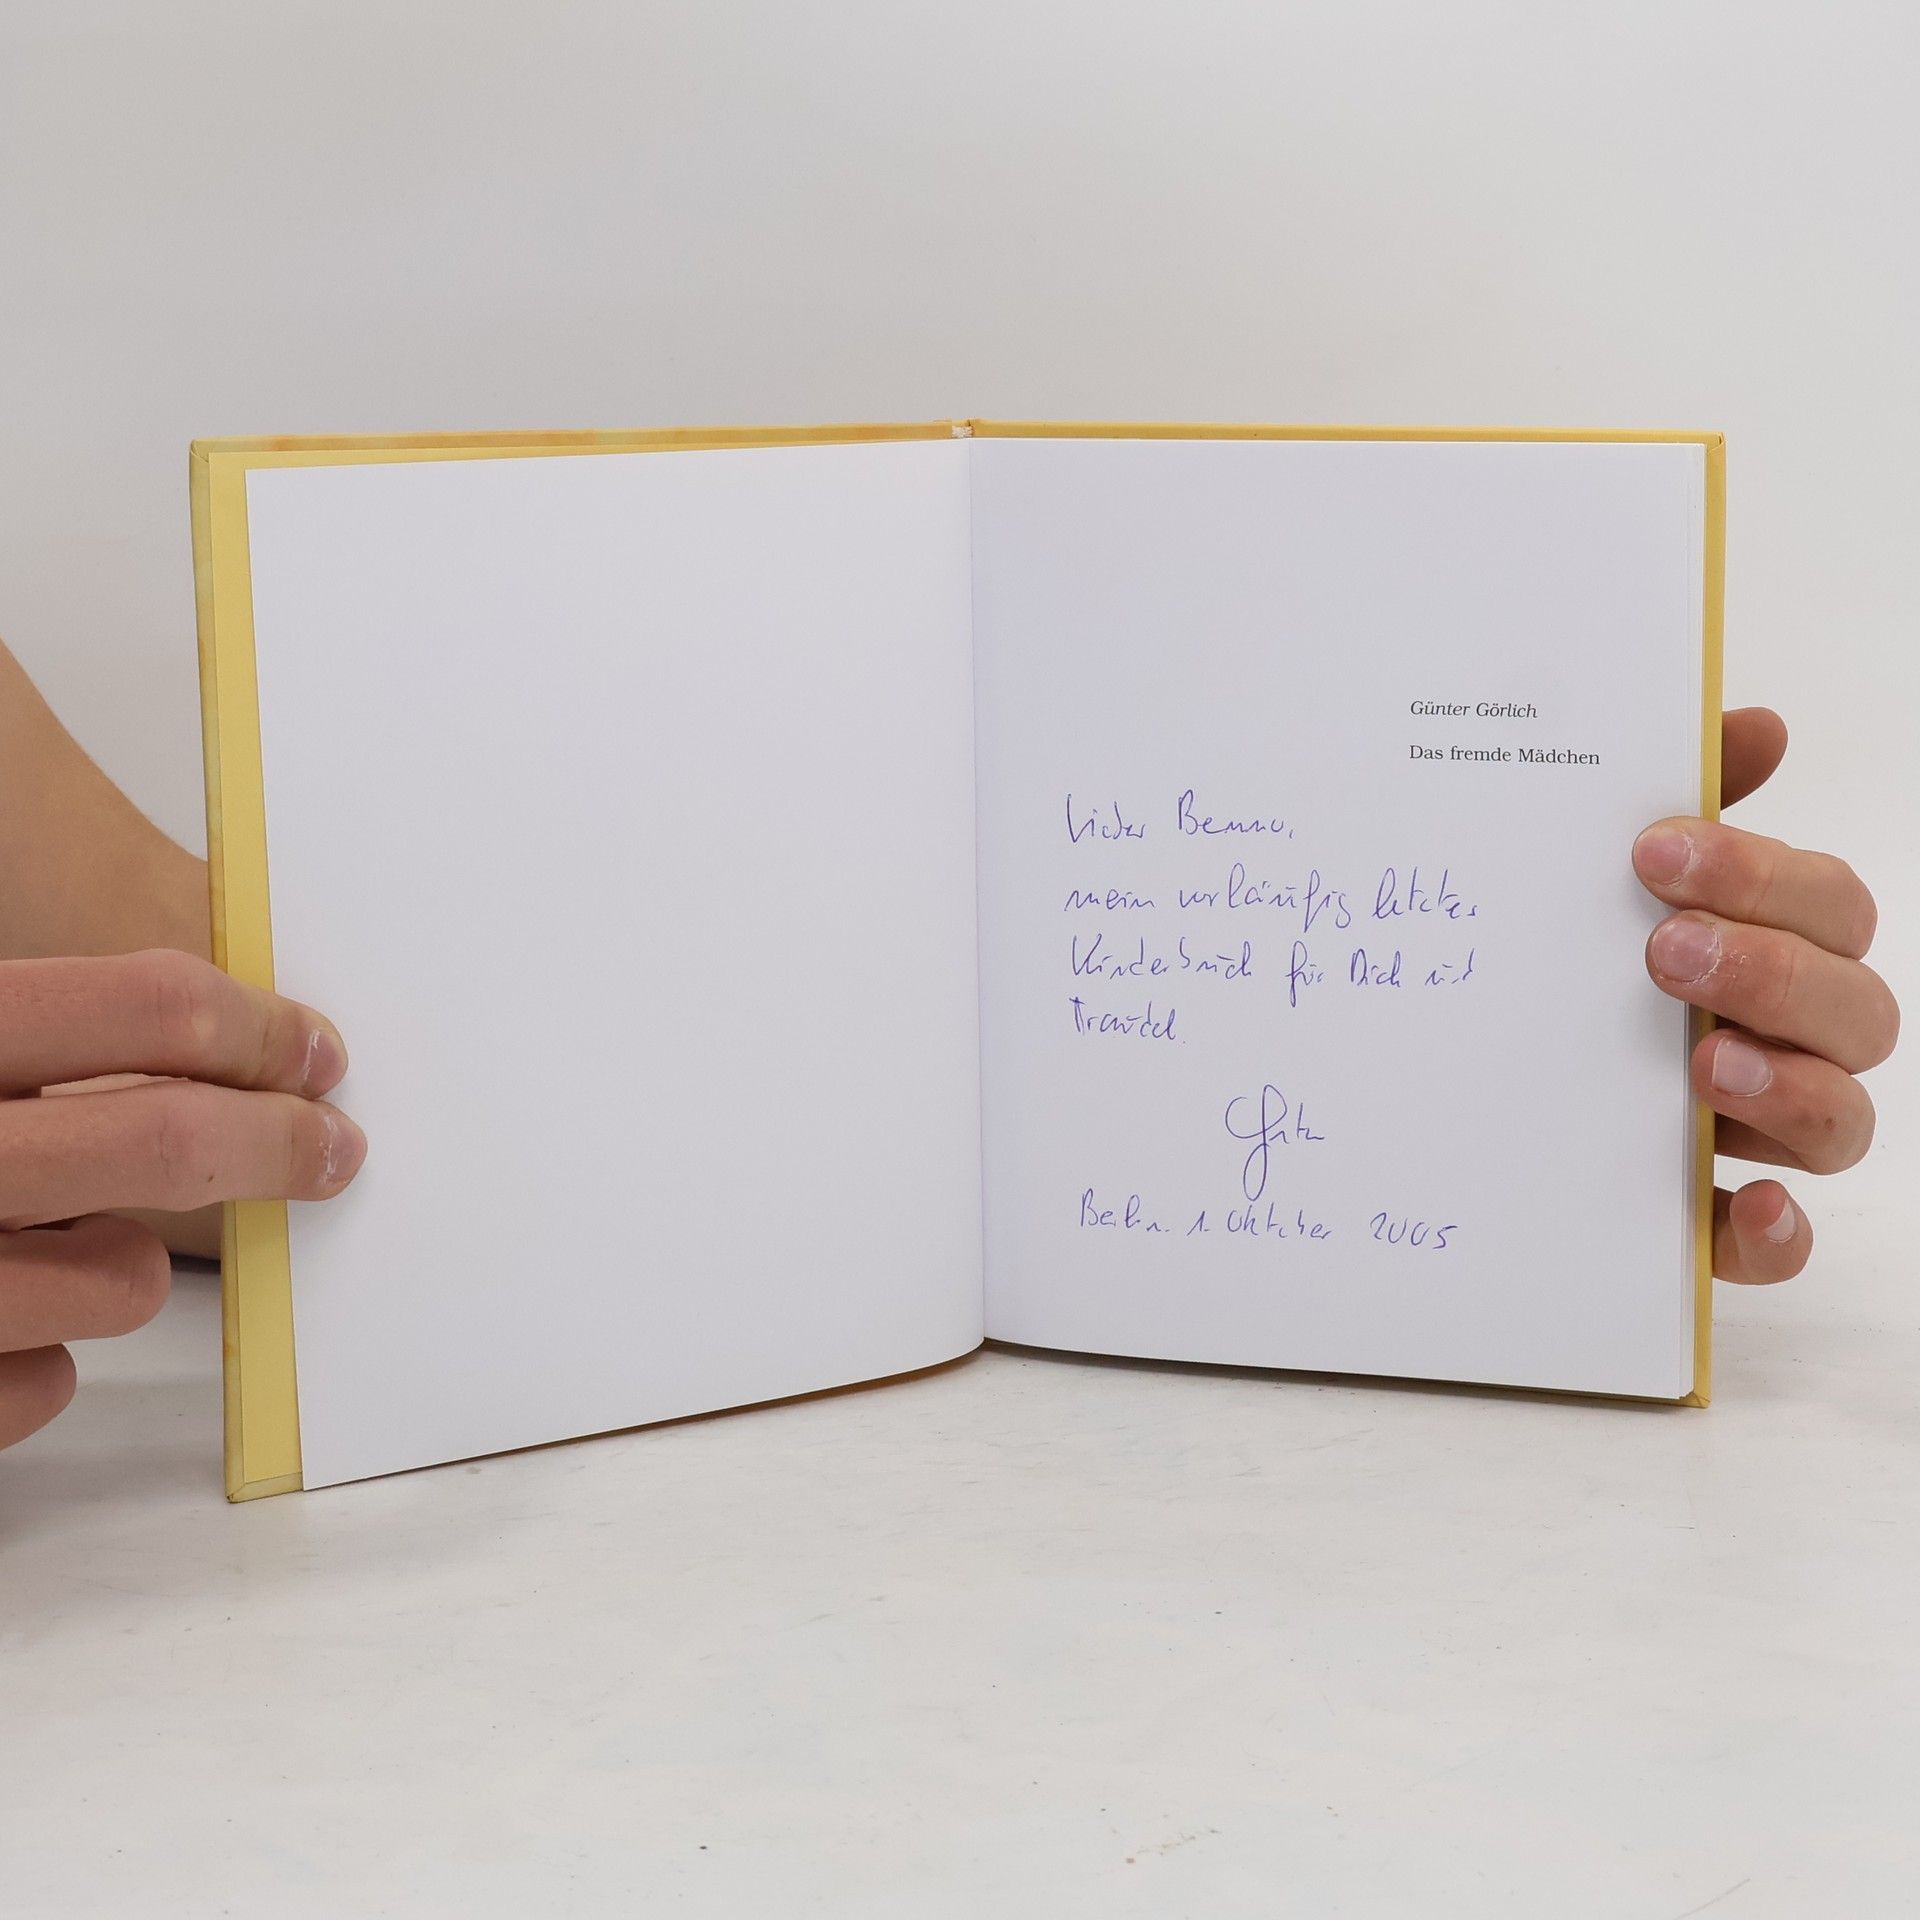 Günter Görlich
Das fremde Mädchen
Lieber Benno,
mein vorläufig letztes
Kinderbuch für Dich und
Traudel.
Berlin. 1. Oktober 2005